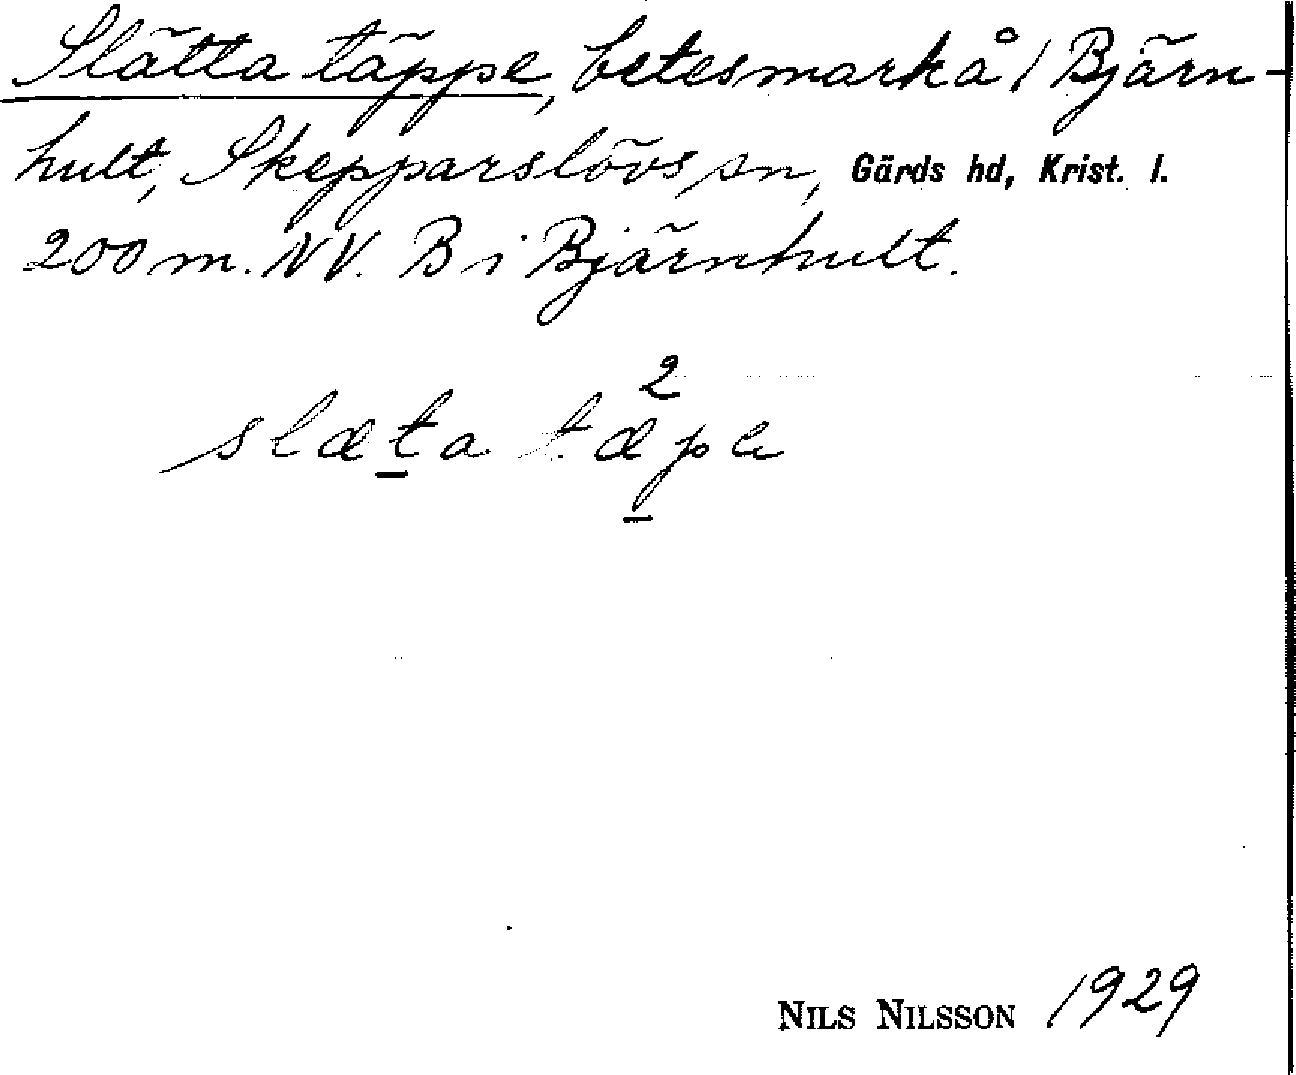 Slätta täppe, betesmark å 1 Bjärn-
hult, Skepparslövs sn, Gärds hd, Krist. l.
200 m. NV. B i Bjärnhult.
2
slæta tæpe
NILS NILSSON 1929